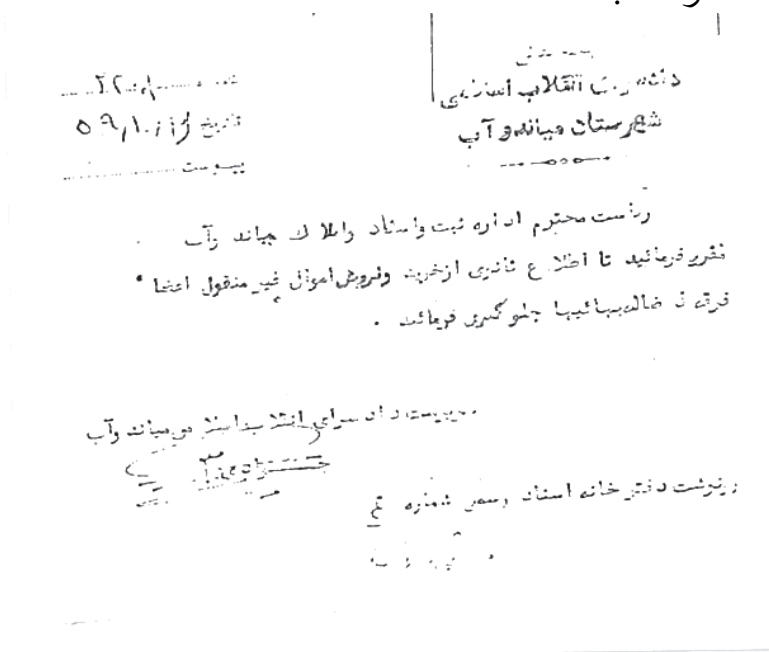 بسمه تعالی
دادسرای انقلاب اسلامی
شهرستان میاندوآب
شماره
تاریخ
پیوست
ریاست محترم اداره ثبت واسناد واملاک میاندوآب
مقررفرمائید تا اطلاع ثانوی ازخرید وفروش اموال غیر منقول اعضا
فرقه ضاله بهائیها جلوگیری فرمائید .
سرپرست دادسرای انقلاب اسلامی میاندوآب
رونوشت دفترخانه اسناد رسمی شماره